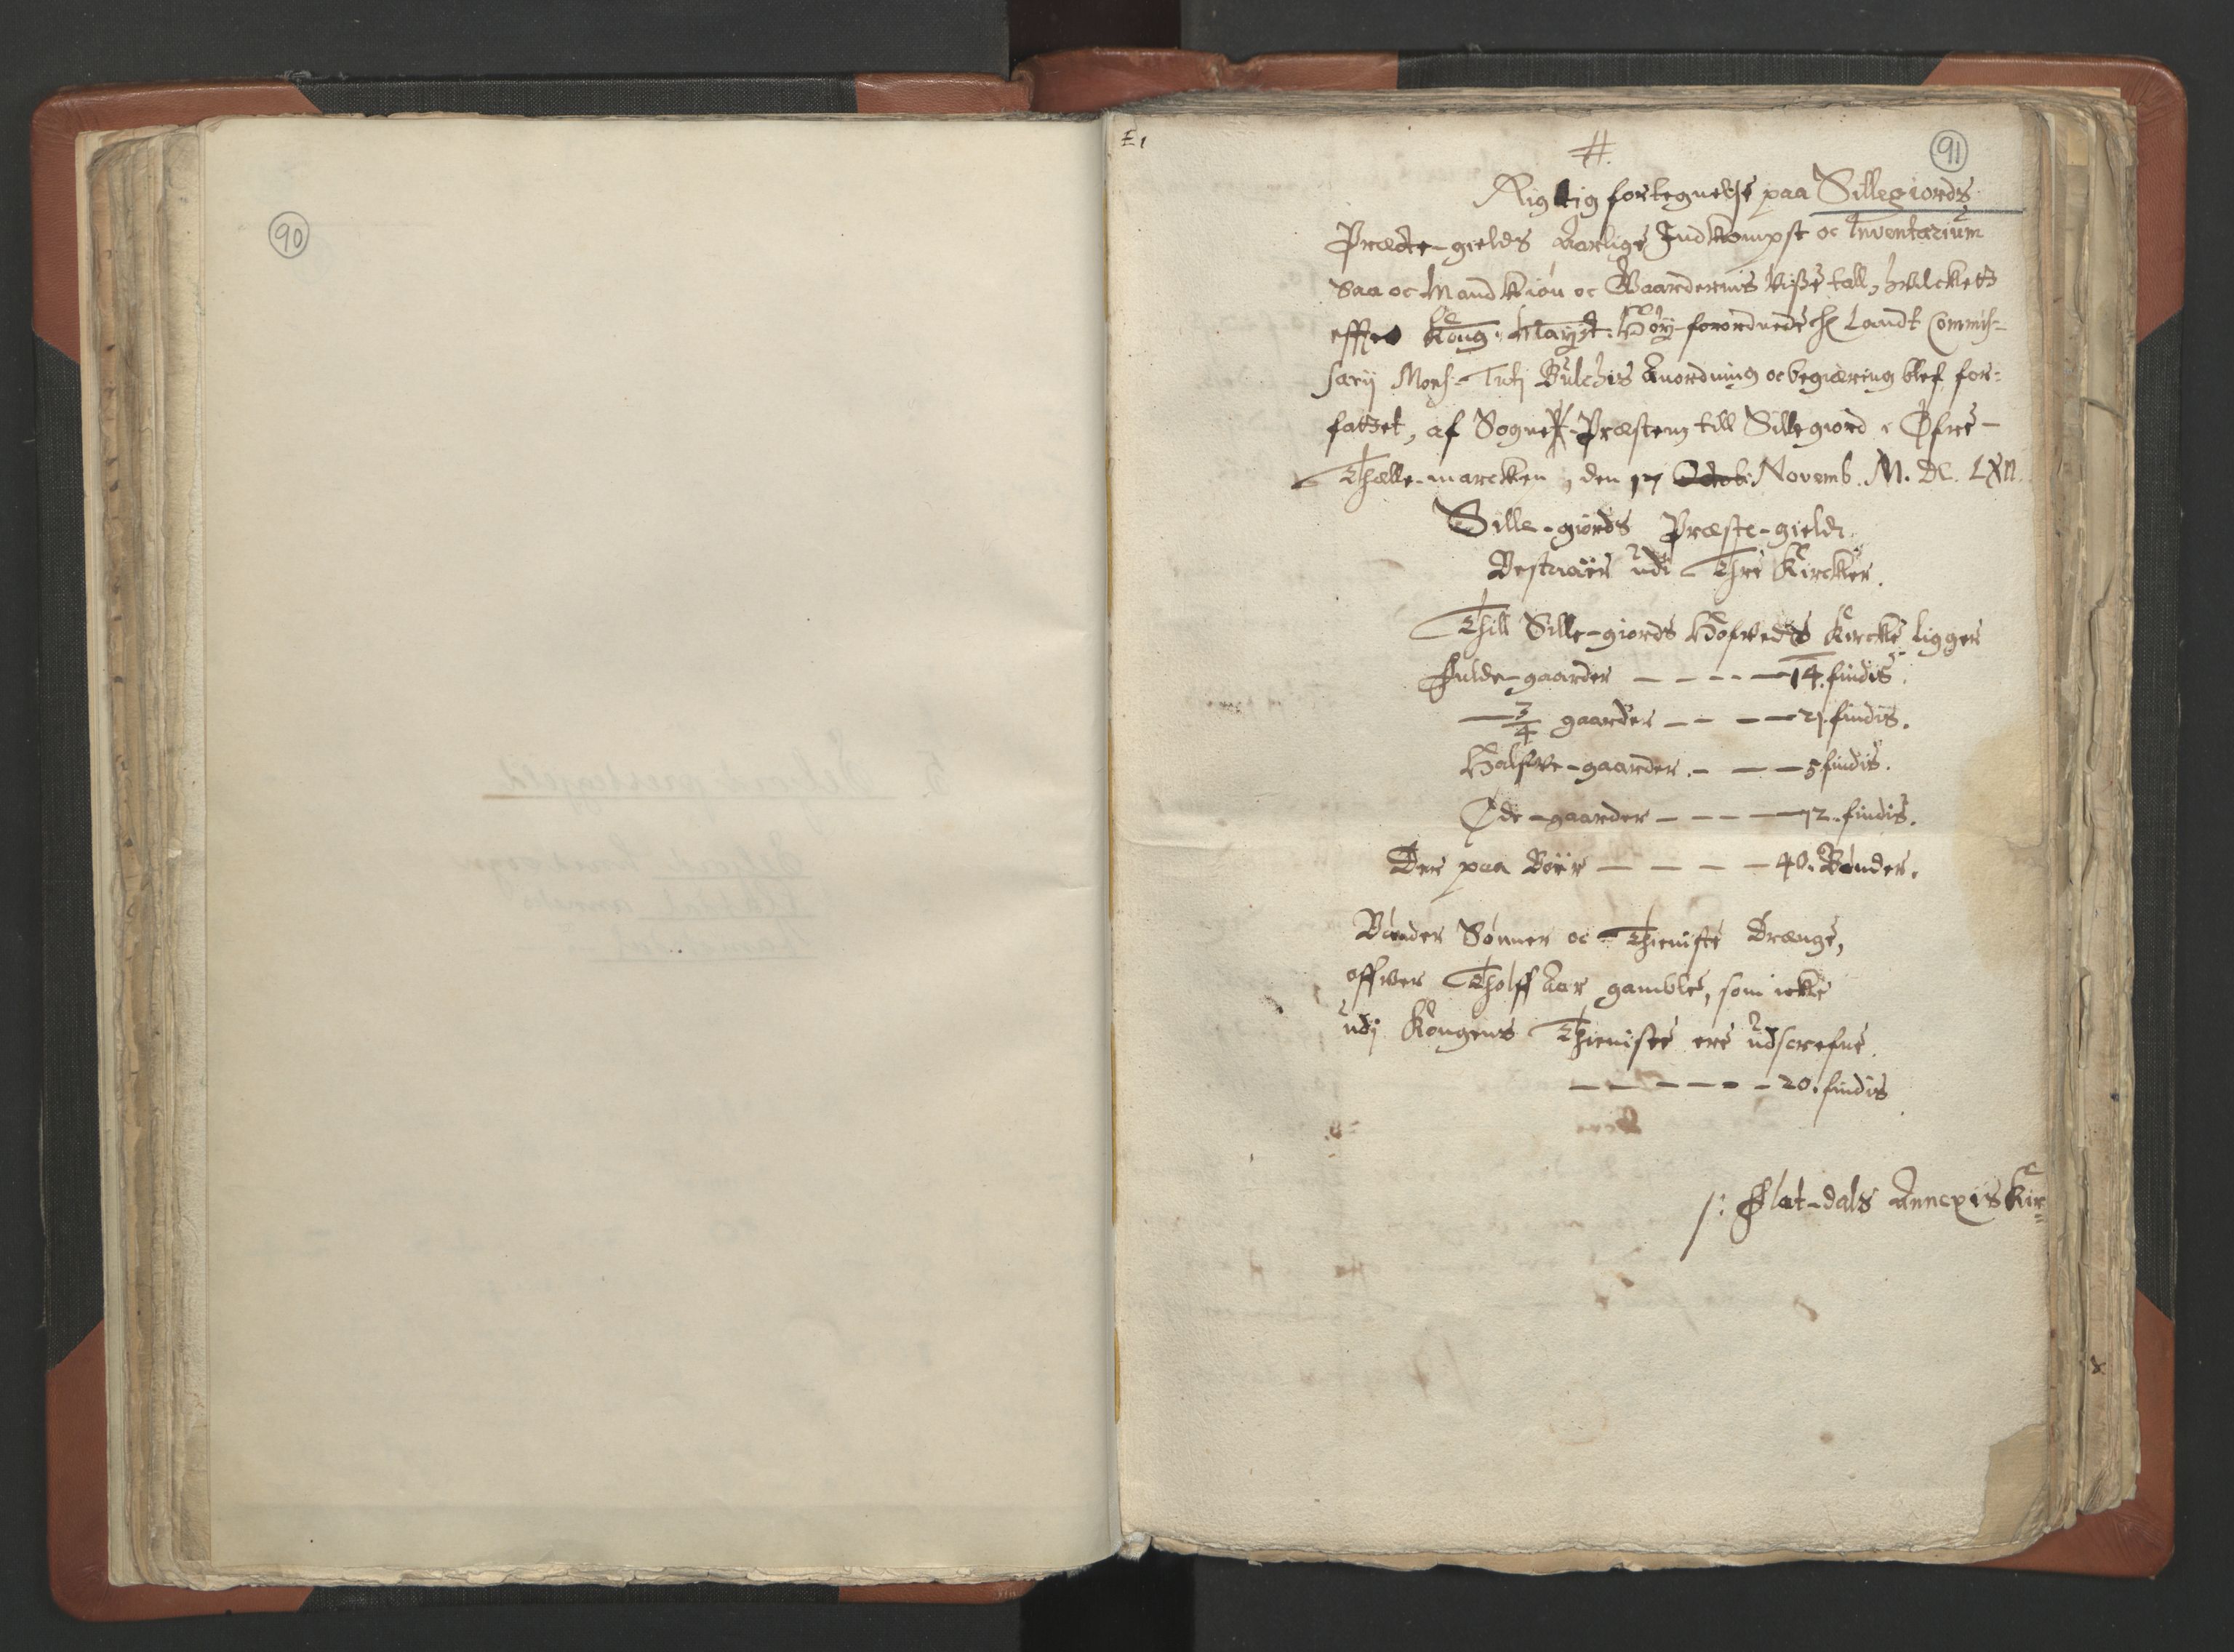 90
E1
#.
91
Rigtig fortegnelse paa Sillegiords
Præste-gields Aarlige Indkompst oc Inventarium
Saa oc Mandkiøn oc Gaardernis visse tall, hvilcket
effter Kong: Mayst: Høy-forordnede Landt Commis=
sarij Mons: Bulchis Anordning oc begiæring blef for=
fatzet, af Sogne-Præsten till Sillegiord i Øfre-
Thælle-marcken, den 17 Octob: Novemb. M. DC. LXII.
Sille-giords Præste-gield
Bestaaer udi Thre Kircker.
Thill Sille-giords Hofvedts Kircke ligger
Fulde-gaarder - - - - 14. findis.
3/4 gaarder - - - 21. findis.
Halfve-gaarder. - - - 5 findis.
Øde-gaarder - - - - 12. findis.
Der paa Boer - - - - 40. Bønder.
Bønder Sønner oc Thieniste Drænge,
offver Tholff Aar gamble, som icke
udj Kongens Thieniste ere udscrefne.
- - - - - 20. findis
/: Flat-dals Annexis Kir=